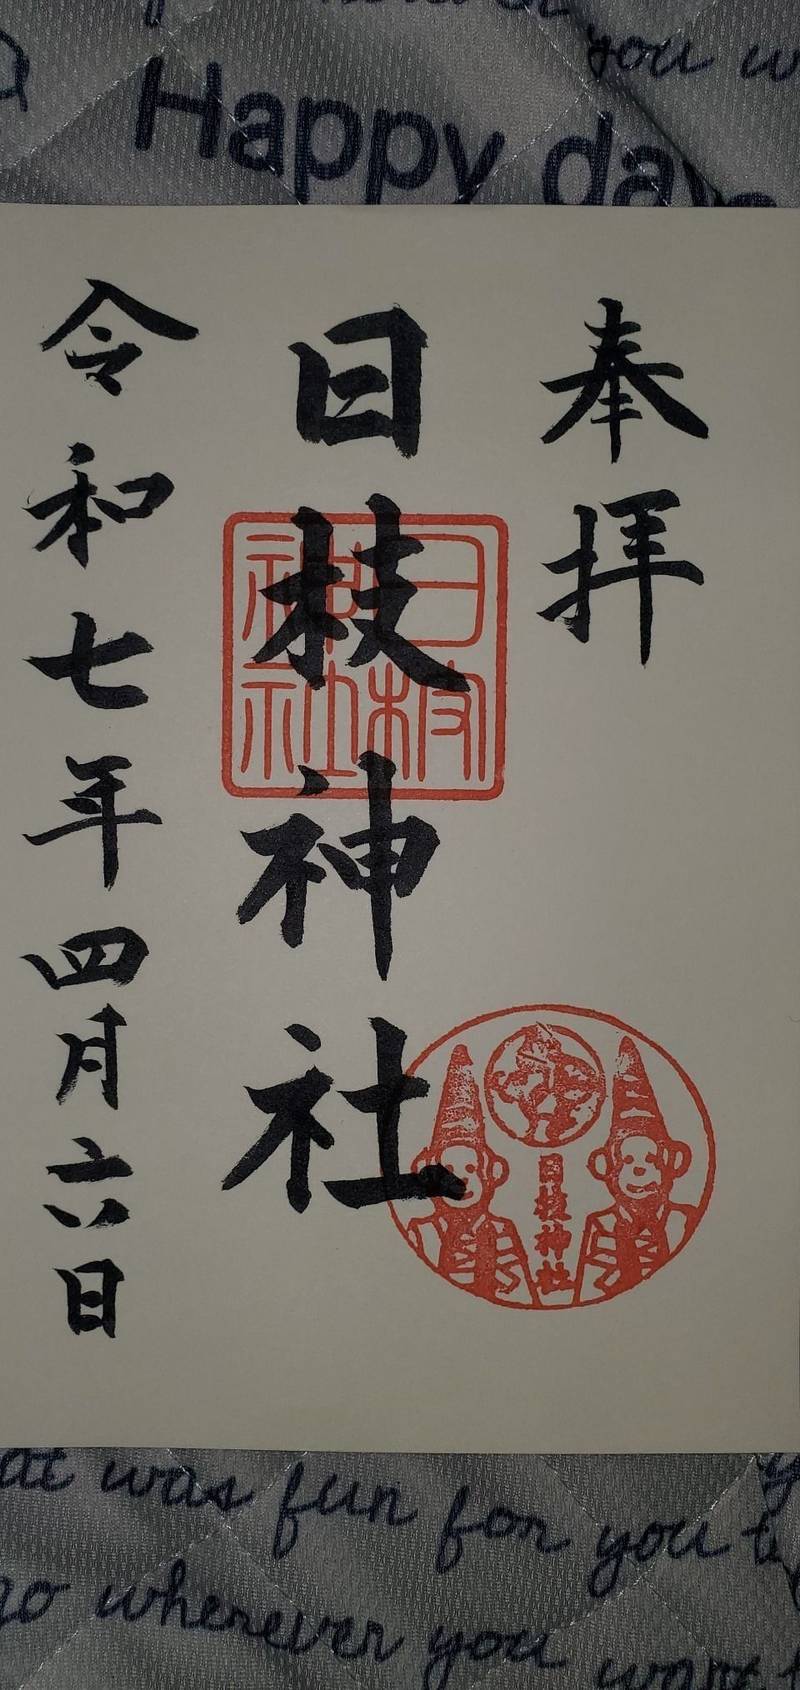 you w
Happy days
奉拝
日枝神社
日枝神社
日枝神社
令和七年四月六日
at was fun for you
go wherever you want t